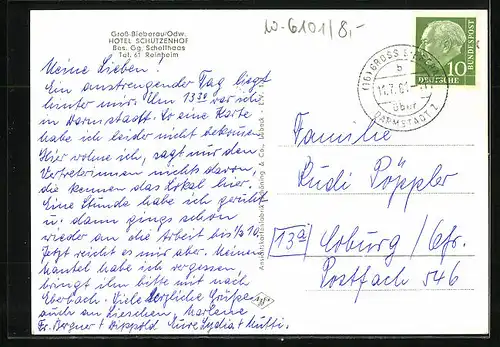 Groß-Bieberau/Odw.
HOTEL SCHÜTZENHOF
Bes. Gg. Schellhaas
Tel. 61 Reinheim
10-6101/8,-
Meine Lieben!
Ein anstrengender Tag liegt
hinter mir. Um 13.30 war ich
in Darmstadt. Er eine Karte
habe ich leider nicht bekommen
Hier wohne ich, sagt nur den
Vertreterinnen nichts davon,
die kennen das Lokal hier.
Eine Stunde habe ich geruht
u. dann gings schon
wieder an die Arbeit bis ½ 10
Jetzt reicht es mir aber. Meinen
Mantel habe ich vergessen,
bringt ihn bitte mit nach
Eberbach. Viele herzliche Grüße
auch an Lieschen, Marlene
Fr. Bogner + Dippold Eure Lydia + Mutti.
(16) GROSS-BIEBERAU
b
über
DARMSTADT 2
10
DEUTSCHE
BUNDESPOST
Familie
Rudi Pöppler
13a Coburg/Ofr.
Postfach 546